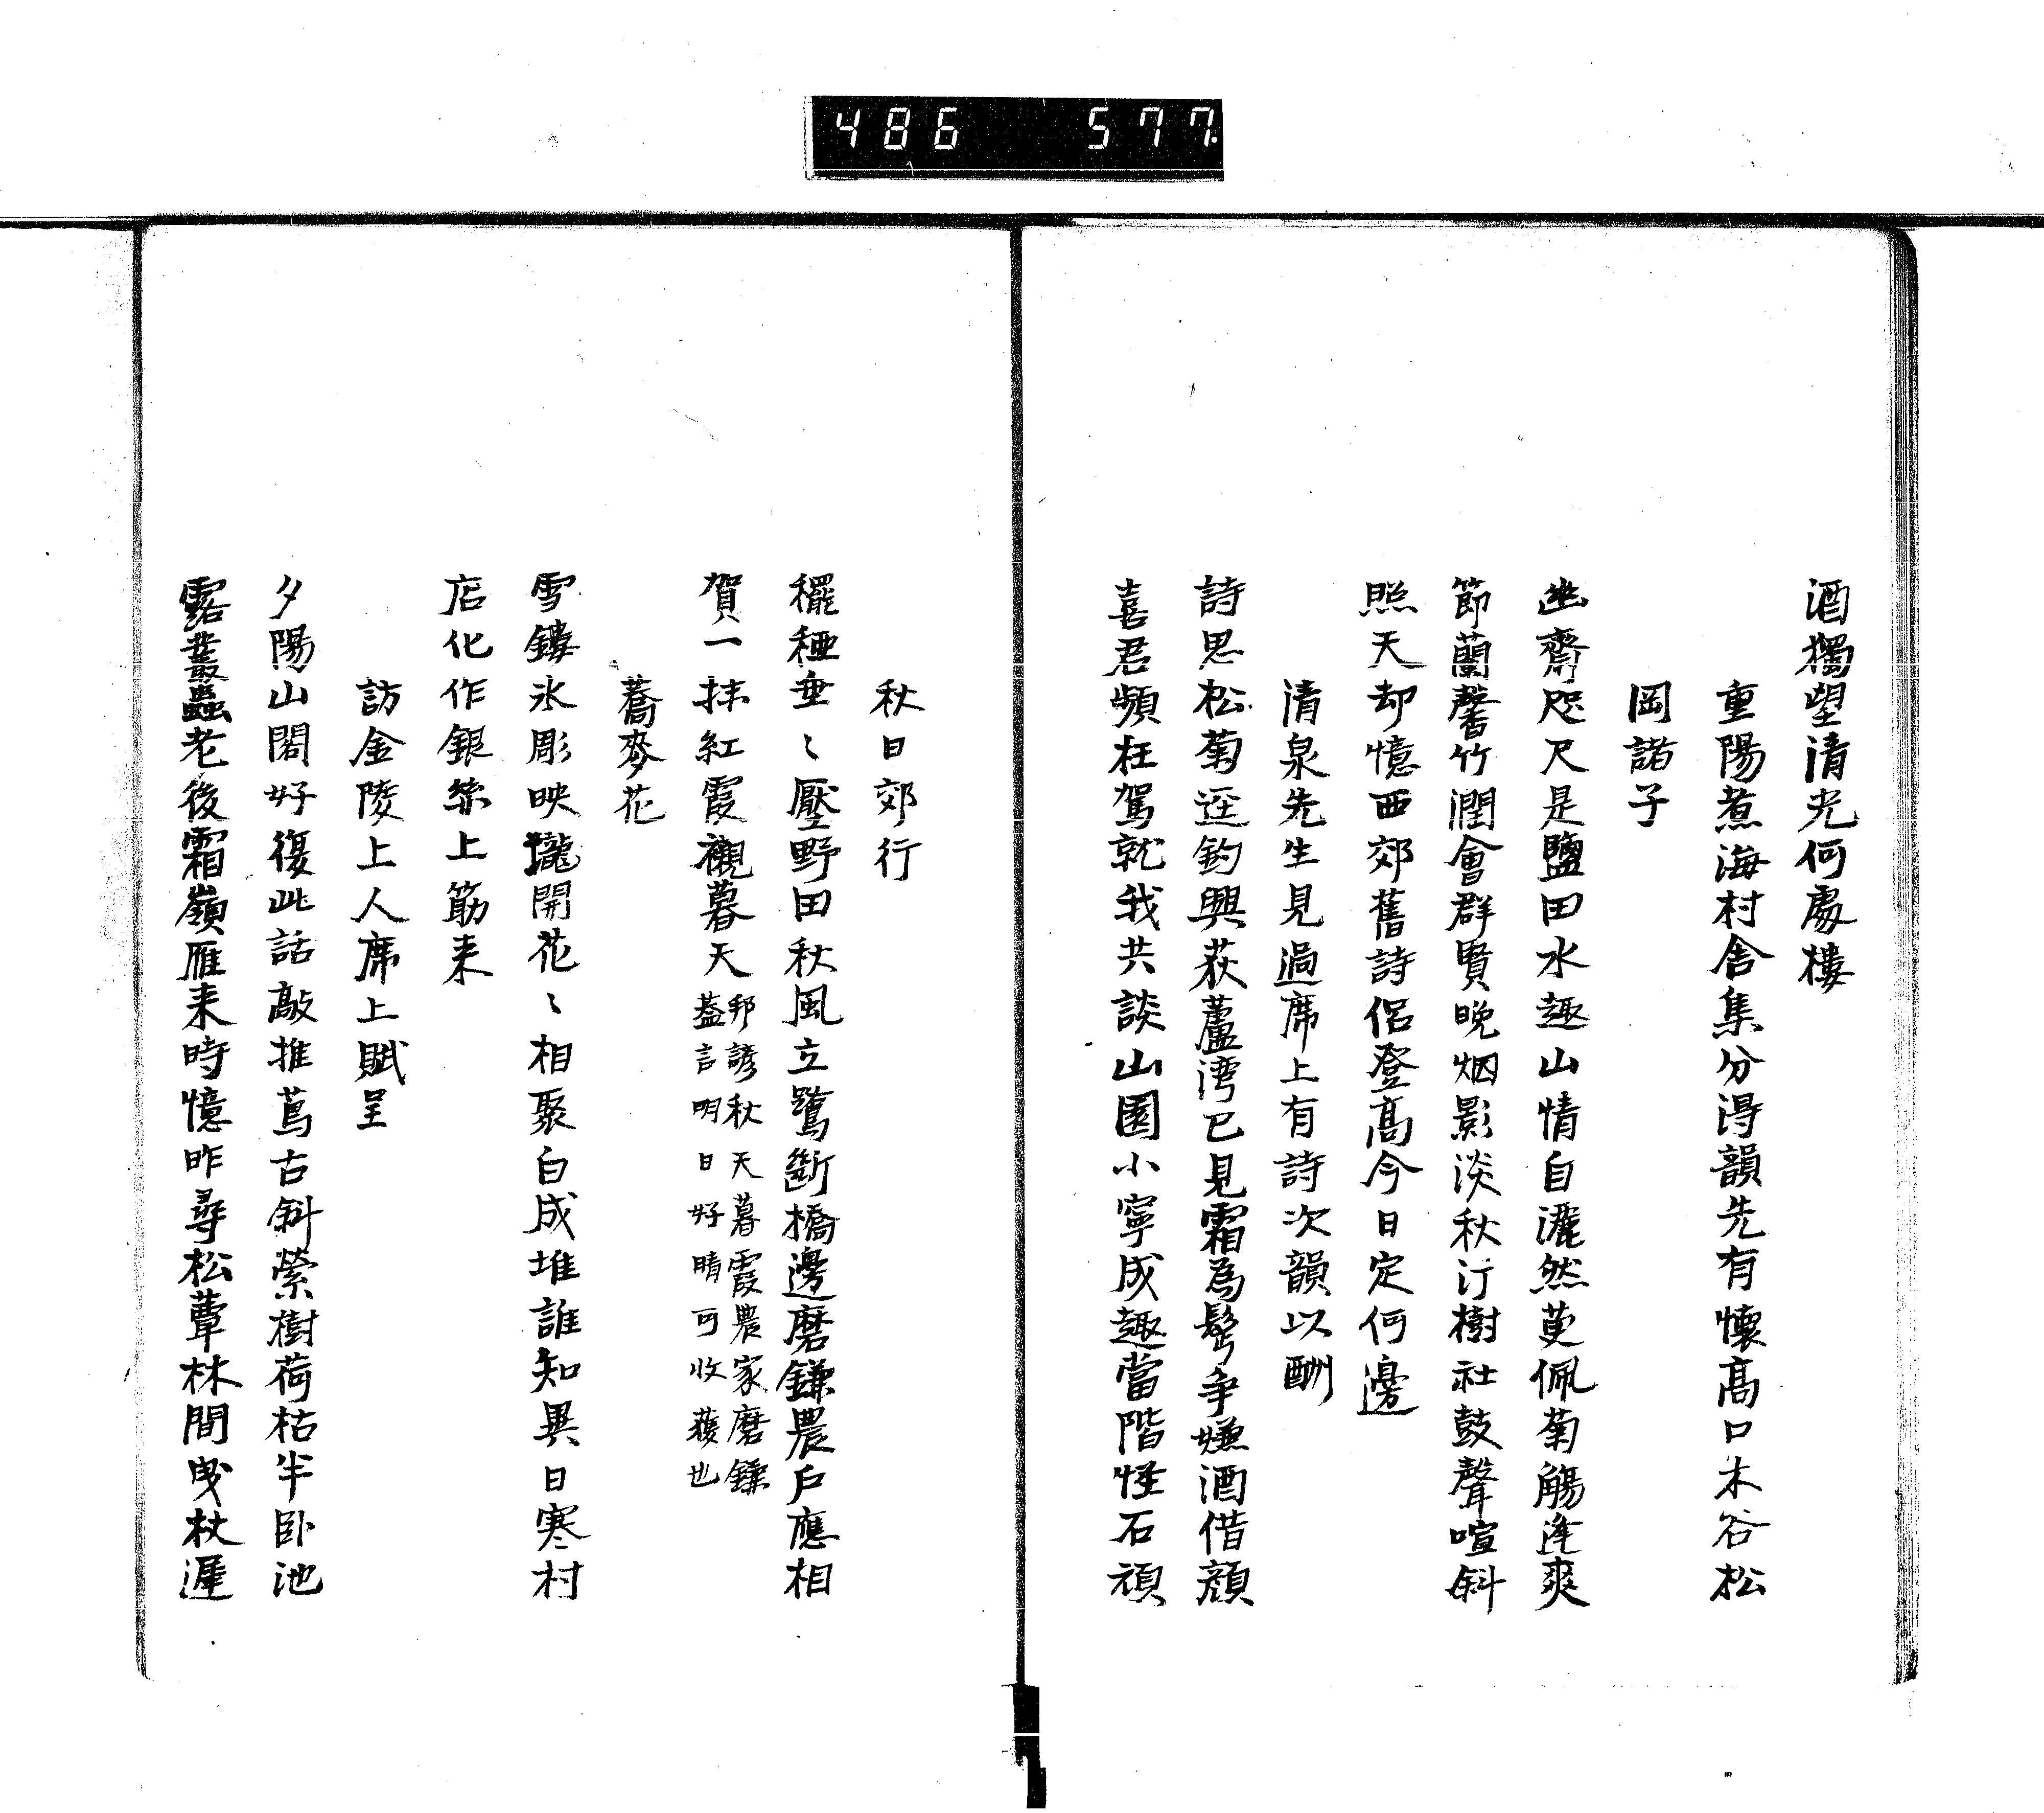 486 577
酒獨望清光何處樓
重陽煮海村舎集分得韻先有懷髙口木谷松
岡諸子
幽齋咫尺是鹽田水趣山情自灑然茰佩菊觴逢爽
節蘭馨竹潤會群賢晩烟影淡秋汀樹社鼓聲喧斜
照天却憶西郊舊詩侶登髙今日定何邊
清泉先生見過席上有詩次韻以酬
詩思松菊逕釣興荻蘆湾已見霜為鬂争嫌酒借顔
喜君頻枉駕就我共談山園小寧成趣當階怪石頑
秋日郊行
䆉稏垂〻壓野田秋風立鷺斷橋邊磨鎌農戶應相
賀一抹紅霞襯暮天
邦諺秋天暮霞農家磨鎌
葢言明日好晴可收穫也
蕎麥花
雪鏤氷彫映壠開花〻相聚白成堆誰知異日寒村
店化作銀絲上筯来
訪金陵上人席上賦呈
夕陽山閣好復此話敲推蔦古斜縈樹荷枯半卧池
露叢蟲老後霜嶺雁来時憶昨尋松蕈林間曳杖遲